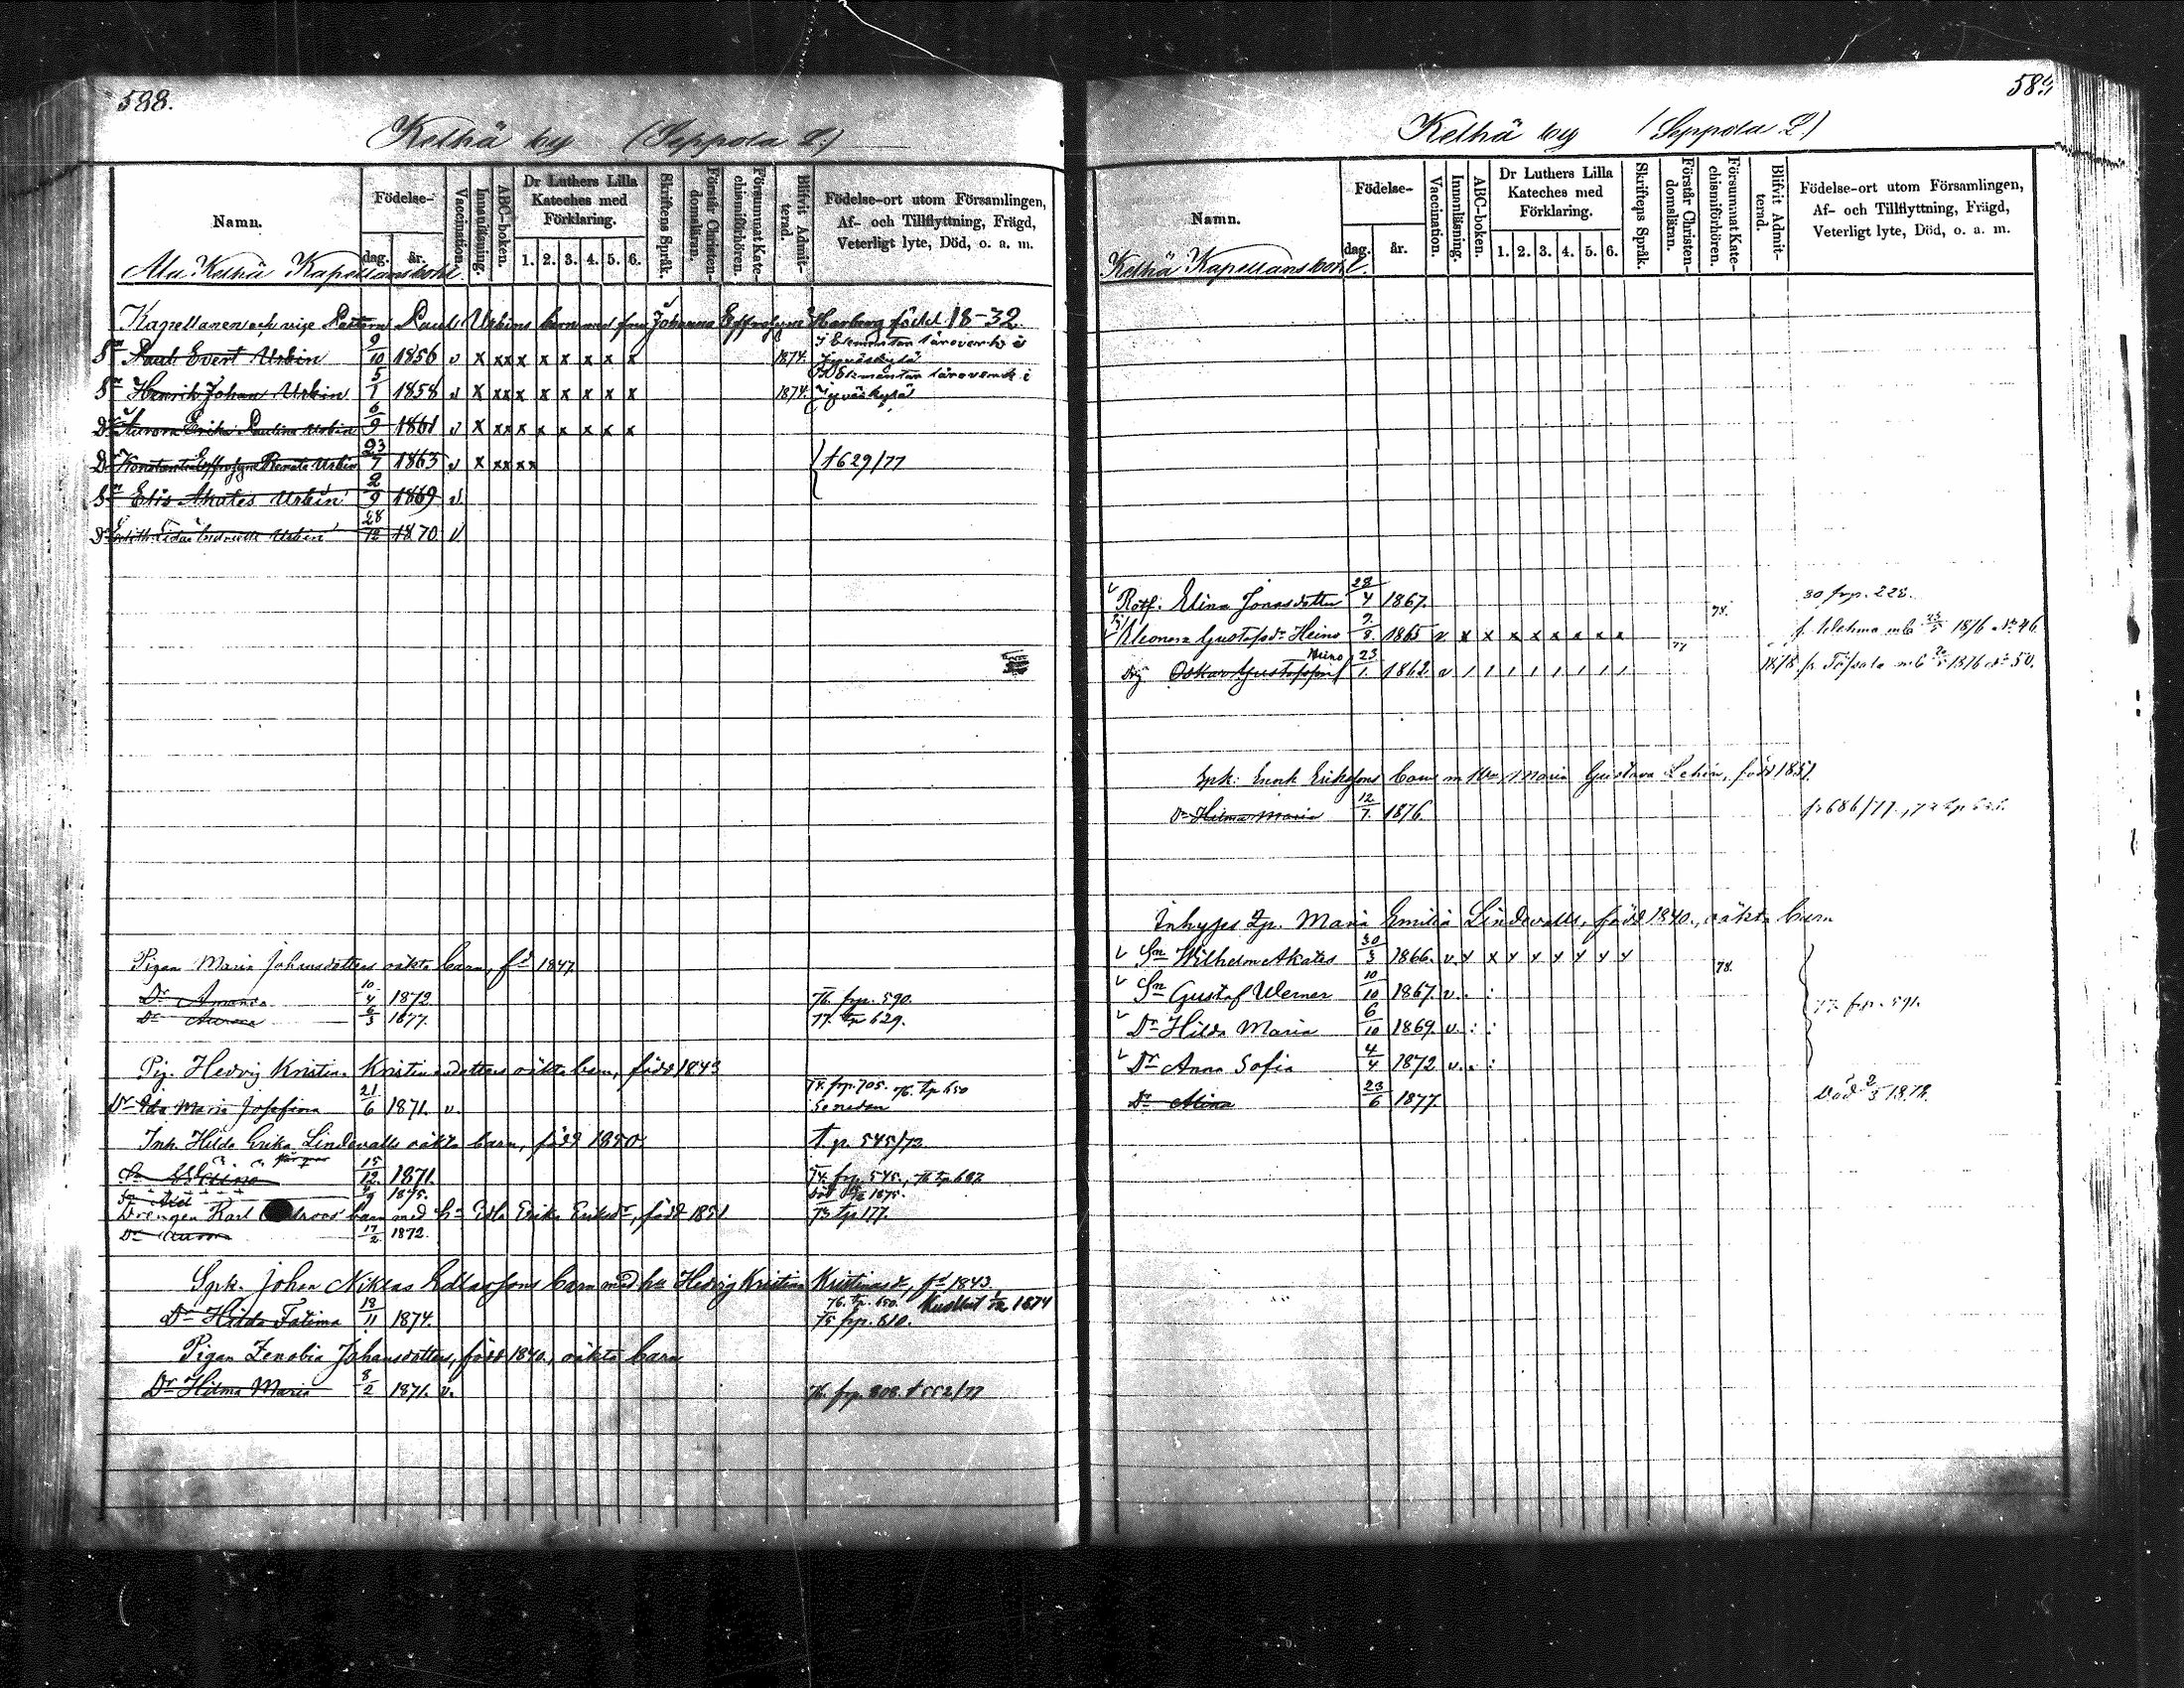 588.
Kelhä by (Seppola 2.)
Namn.
Födelse-
dag.
år.
Vaccination.
Innanläsning.
ABC-boken.
Dr Luthers Lilla Kateches med Förklaring.
1. 2. 3. 4. 5. 6.
Skriftens Språk.
Förstår Christendomsläran.
Försummat Katechismiförhören.
Blifvit Admitterad.
Födelse-ort utom Församlingen, Af- och Tillflyttning, Frägd, Veterligt lyte, Död, o. a. m.
Ala Kelhä Kapellansbohl
Kapellanen och vice Pastorn Paul Urbins barn med fru Johanna Effrosyne Harberg född 18-32.
Sn Paul Evert Urbin 9/10 1856 v x xx x x x x x x 1874. i Elementar läroverk i Jyväskylä
Sn Henrik Johan Urbin 5/1 1858 v x xx x x x x x x 1874. i Elementar läroverk i Jyväskylä
Dr Aurora Erika Paulina Urbin 6/9 1861 v x xx x x x x x x
Dr Konstantia Effrosyne Renata Urbin 23/7 1863 v x xx x x t 629/77
Sn Elis Akates Urbin 2/9 1869 v
Dr Edith Lidia Urbin 28/12 1870 v
Pigan Maria Johansdotters oäkta barn, fd 1847
Dr Amanda 10/4 1872. 76. frp. 590.
Dr Aurora 6/3 1877. 77. tp 629.
Pig. Hedvig Kristina Kristinadotters oäkta barn, född 1843
Dr Ida Maria Josefina 21/6 1871. v. 74. frp. 705. 76. tp. 650
Inh. Hilda Erika Lindevalls oäkta barn, född 1850 t. p. 545/73
15/12 1871. 74. frp. 545., 76 tp 687
1875. död 1875.
Drengen Karl barn med h= Edla Erika Eriksdr, född 1851 73 tp 177.
Dr Aurora 17/2 1872.
Spk. Johan Niklas Edlarssons barn med hu Hedvig Kristina Kristinasdr, fd 1843.
Dr Hilda Fatima 18/11 1874. 76. tp. 650. Kuollut 1874
75 frp. 810.
Pigan Zenobia Johansdotters, född 1840., oäkta barn
Dr Hilma Maria 8/2 1871. v. 76. frp. 808. t 552/77
589
Kelhä by (Seppola 2.)
Namn.
Födelse-
dag.
år.
Vaccination.
Innanläsning.
ABC-boken.
Dr Luthers Lilla Kateches med Förklaring.
1. 2. 3. 4. 5. 6.
Skriftens Språk.
Förstår Christendomsläran.
Försummat Katechismiförhören.
Blifvit Admitterad.
Födelse-ort utom Församlingen, Af- och Tillflyttning, Frägd, Veterligt lyte, Död, o. a. m.
Kelhä Kapellansbohl.
Rotf. Elina Jonasdotter 28/4 1867. 80 frp. 228.
Eleonora Gustafsdr Heino 9/8. 1865 v x x x x x x x x 78. f. Urdiala mb 1876 No 46.
drg Oskar Gustafsson Heino 23/1. 1862. v / / / / / / / / 77 1878. fr mb 1876 No 50.
Spk: Enok Erikssons barn m. Maria Gustava Lehin, född 1851.
Dr Hilma Maria 12/7. 1876. fr 686/77.
Inhyses Maria Emilia Lindevalls, född 1840., oäkta barn
Sn Wilhelm Akates 30/3 1866. v. x x x x x x x x 78.
Sn Gustaf Werner 10/10 1867. v. . :
Dr Hilda Maria 6/10 1869. v. : : 77. frp. 591.
Dr Anna Sofia 4/4 1872 v. . :
Dr Alina 23/6 1877. Död 2/5 1878.